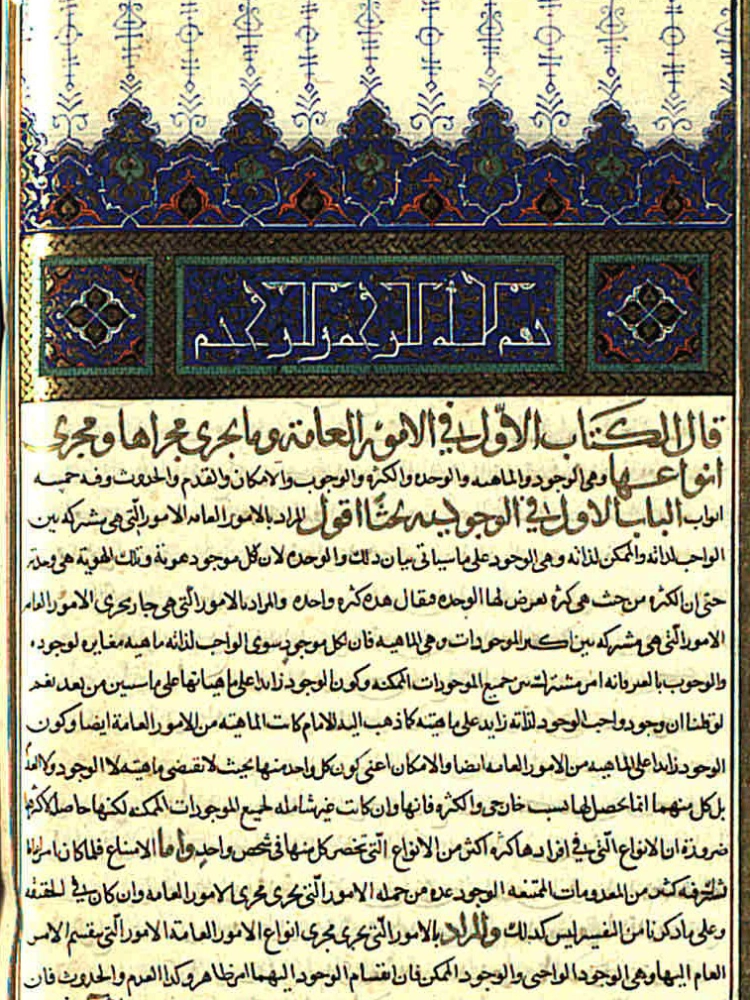 بسم الله الرحمن الرحيم
قال الكتاب الأول في الامور العامة وما يجري مجراها ومجرى
انواعها وهي الوجود والماهية والوحدة والكثرة والوجوب والامكان والقدم والحدوث وفيه خمسة
ابواب الباب الاول في الوجود وفيه ابحاث اقول المراد بالامور العامة الامور التي هي مشتركة بين
الواجب لذاته والممكن لذاته وهي الوجود على ما سياتي بيان ذلك والوحدة لان كل موجود هوية وتلك الهوية هي وحدته
حتى ان الكثرة من حيث هي كثرة تعرض لها الوحدة فيقال هذه كثرة واحدة والمراد بالامور التي هي جارية مجرى الامور العامة
الامور التي هي مشتركة بين اكثر الموجودات وهي الماهية فان لكل موجود سوى الواجب لذاته ماهية مغايرة لوجوده
والوجوب بالغير فانه امر مشترك بين جميع الموجودات الممكنة وكون الوجود زايدا على ماهياتها على ما سيبين من بعد نعم
لو قلنا ان وجود واجب الوجود لذاته زايد على ماهيته كما ذهب اليه الامام كانت الماهية من الامور العامة ايضا وكون
الوجود زايدا على الماهية من الامور العامة ايضا والامكان اعني كون كل واحد منها بحيث لا تقتضي ماهيته لا الوجود ولا العدم
بل كل منهما انما يحصل لها بسبب خارجي والكثرة فانها وان كانت غير شاملة لجميع الموجودات الممكنة لكنها حاصلة لاكثرها
ضرورة ان الانواع التي في افرادها كثرة اكثر من الانواع التي تنحصر كل منها في شخص واحد واما الامتناع فلما كان امرا
تشترك فيه كثير من المعدومات الممتنعة الوجود عده من جملة الامور التي تجري مجرى الامور العامة وان كان في الحقيقة
وعلى ما ذكرنا من التفسير ليس كذلك والمراد بالامور التي تجري مجرى انواع الامور العامة الامور التي ينقسم الامر
العام اليها وهي الوجود الواجبي والوجود الممكن فان انقسام الوجود اليهما امر ظاهر وكذا القدم والحدوث فان